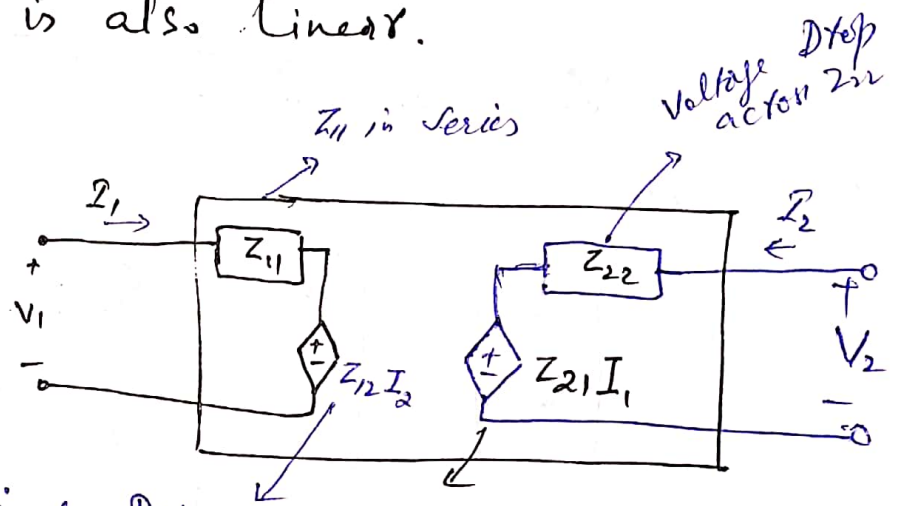 is also linear.
Z11 in series
Voltage Drop
across Z22
I1
I2
Z11
Z22
+
V1
-
+
-
Z12 I2
+
-
Z21 I1
+
V2
-